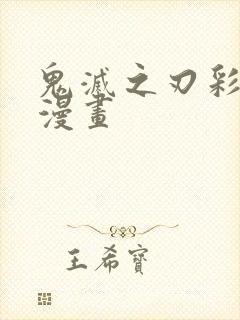 鬼滅之刃彩
漫畫
王希寶